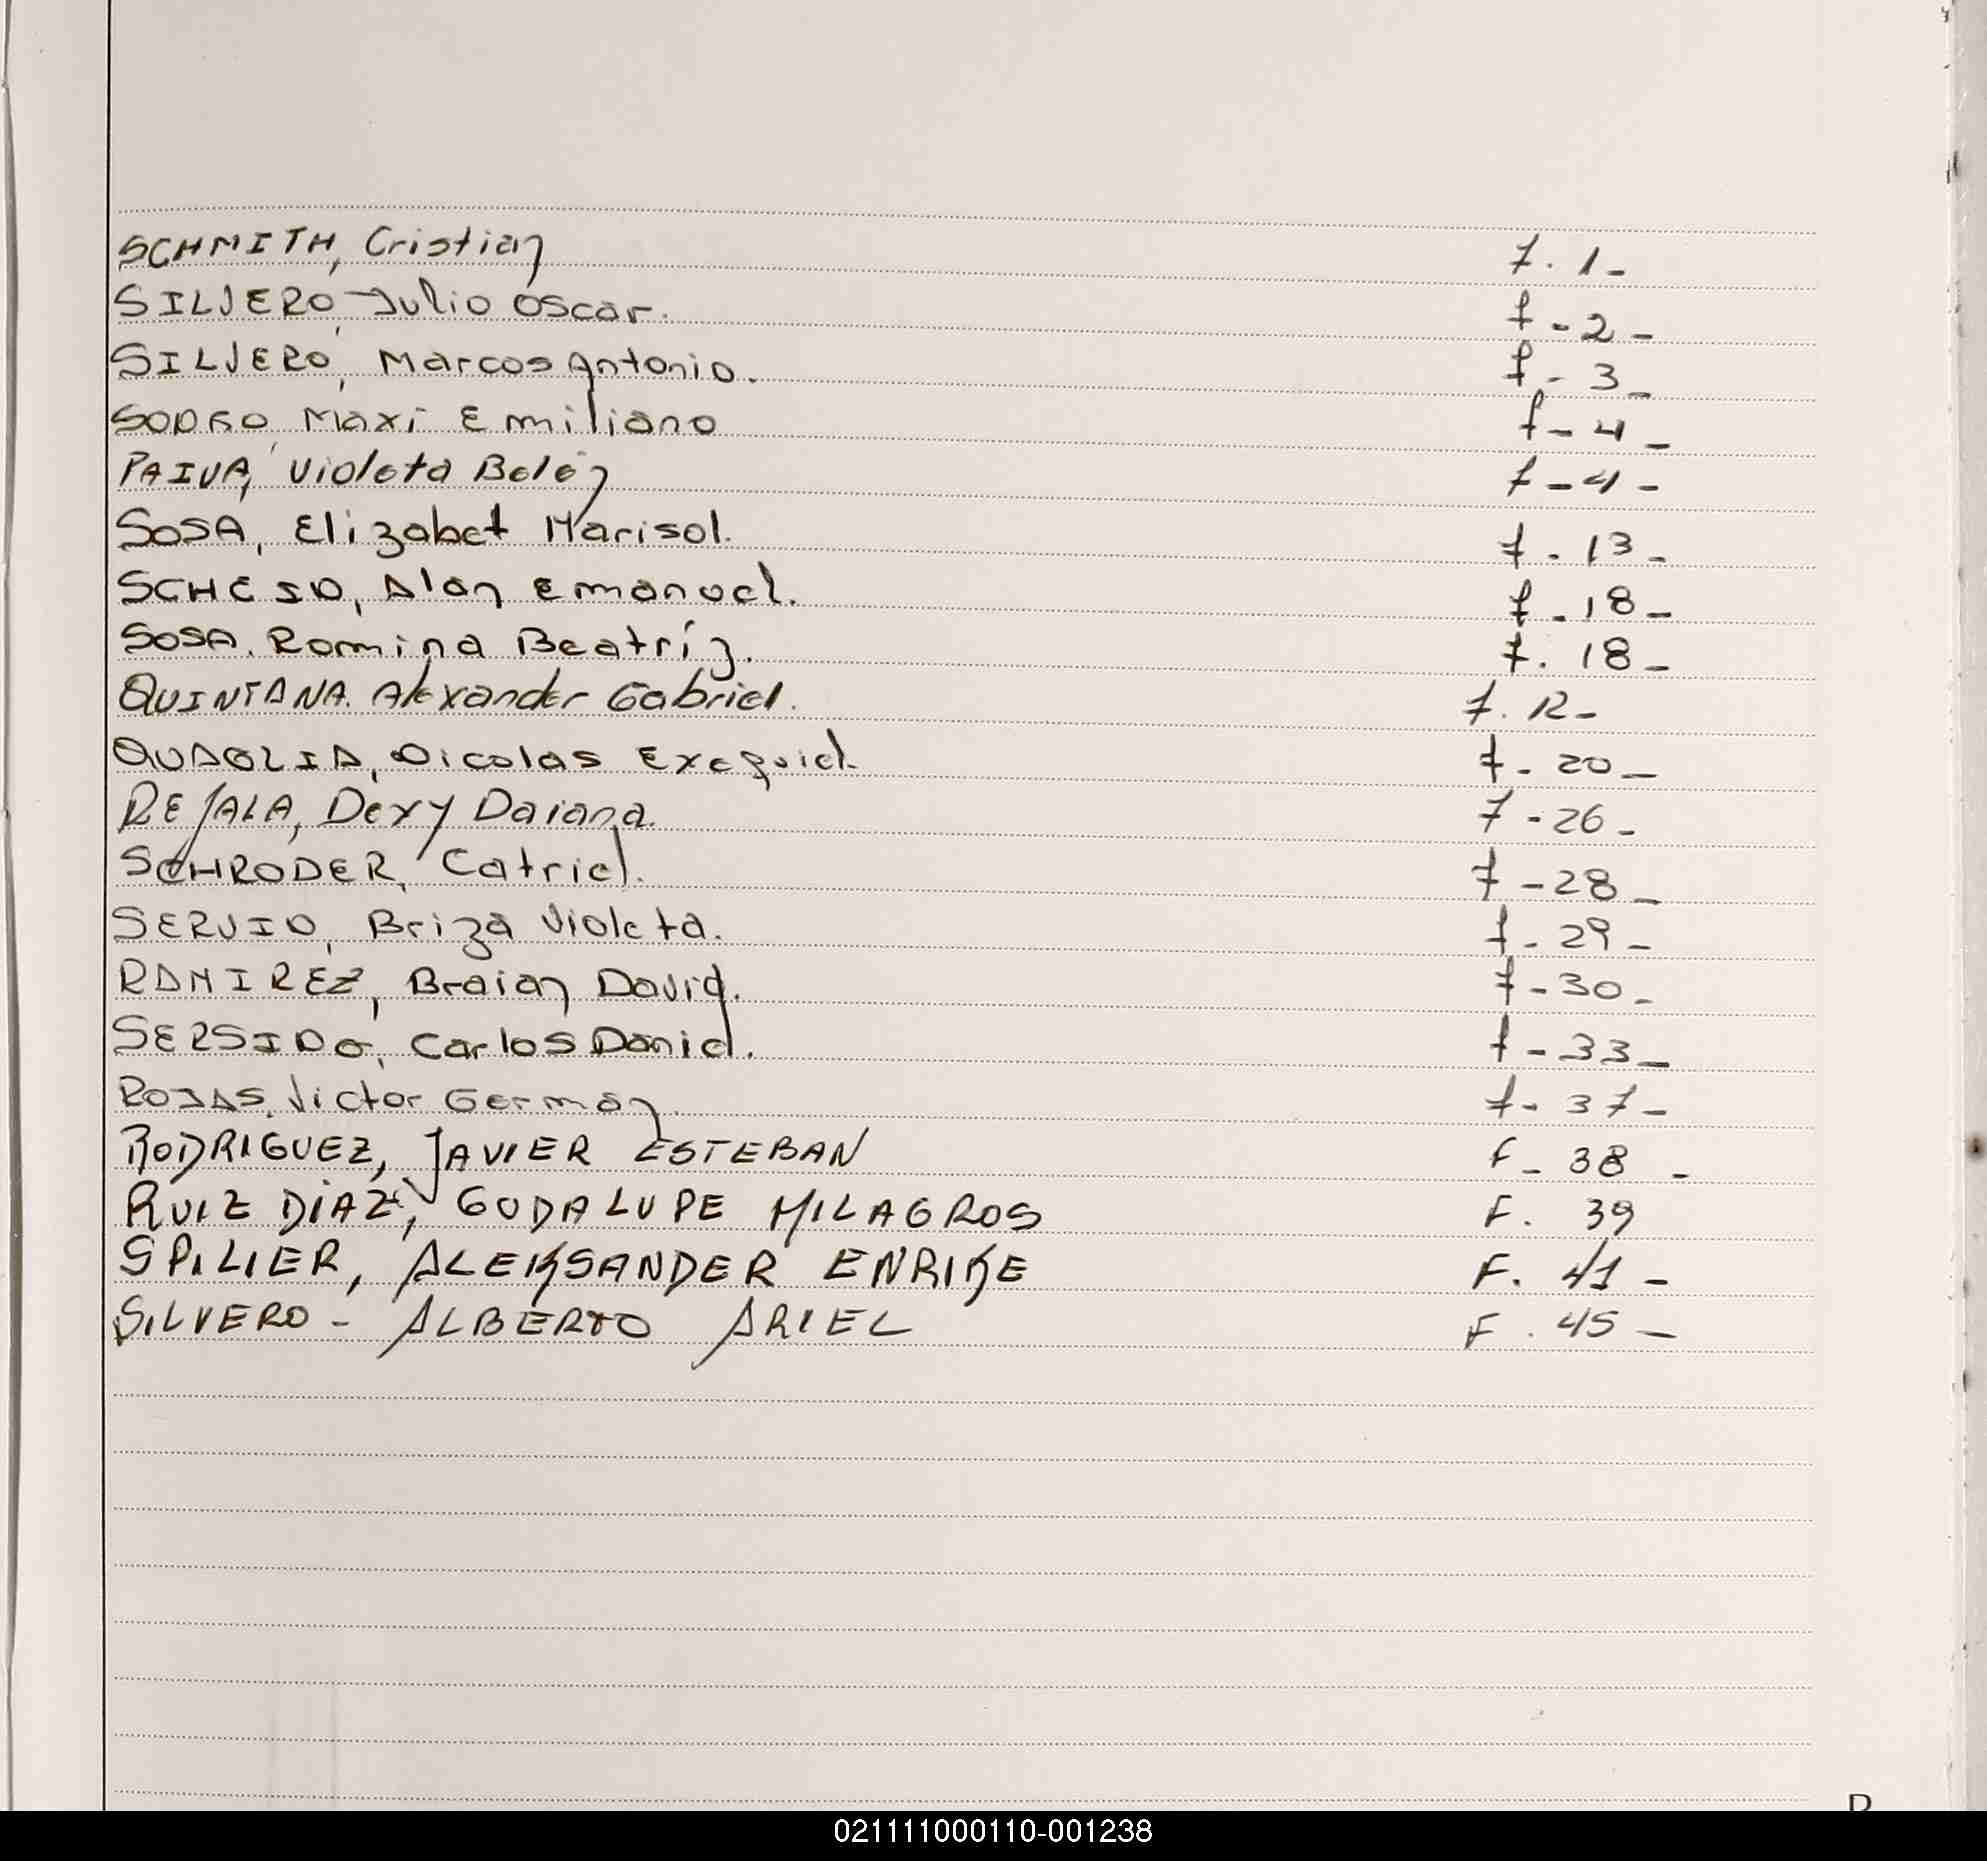 SCHMITH, Cristian f. 1-
SILVERO, Julio Oscar. f - 2 -
SILVERO, Marcos Antonio. f - 3 -
SODRO, Maxi Emiliano f - 4 -
PAIVA, Violeta Belén f - 4 -
SOSA, Elizabet Marisol. f - 13 -
Alan Emanuel. f - 18 -
SOSA. Romina Beatríz. f. 18 -
QUINTANA. Alexander Gabriel. f. 12-
QUAGLIA, Nicolas Exequiel. f - 20 -
REJALA, Dexy Daiana. f - 26 -
SCHRODER, Catriel. f - 28 -
SERVIO, Briza Violeta. f - 29 -
RAMIREZ, Braian David. f - 30 -
SERSIDO, Carlos Daniel. f - 33 -
ROJAS, Victor Germán. f - 37 -
RODRIGUEZ, JAVIER ESTEBAN f - 38 -
RUIZ DÍAZ, GUDALUPE MILAGROS F. 39
SPILIER, ALEKSANDER ENRIKE F. 41 -
SILVERO - ALBERTO ARIEL F. 45 -
021111000110-001238